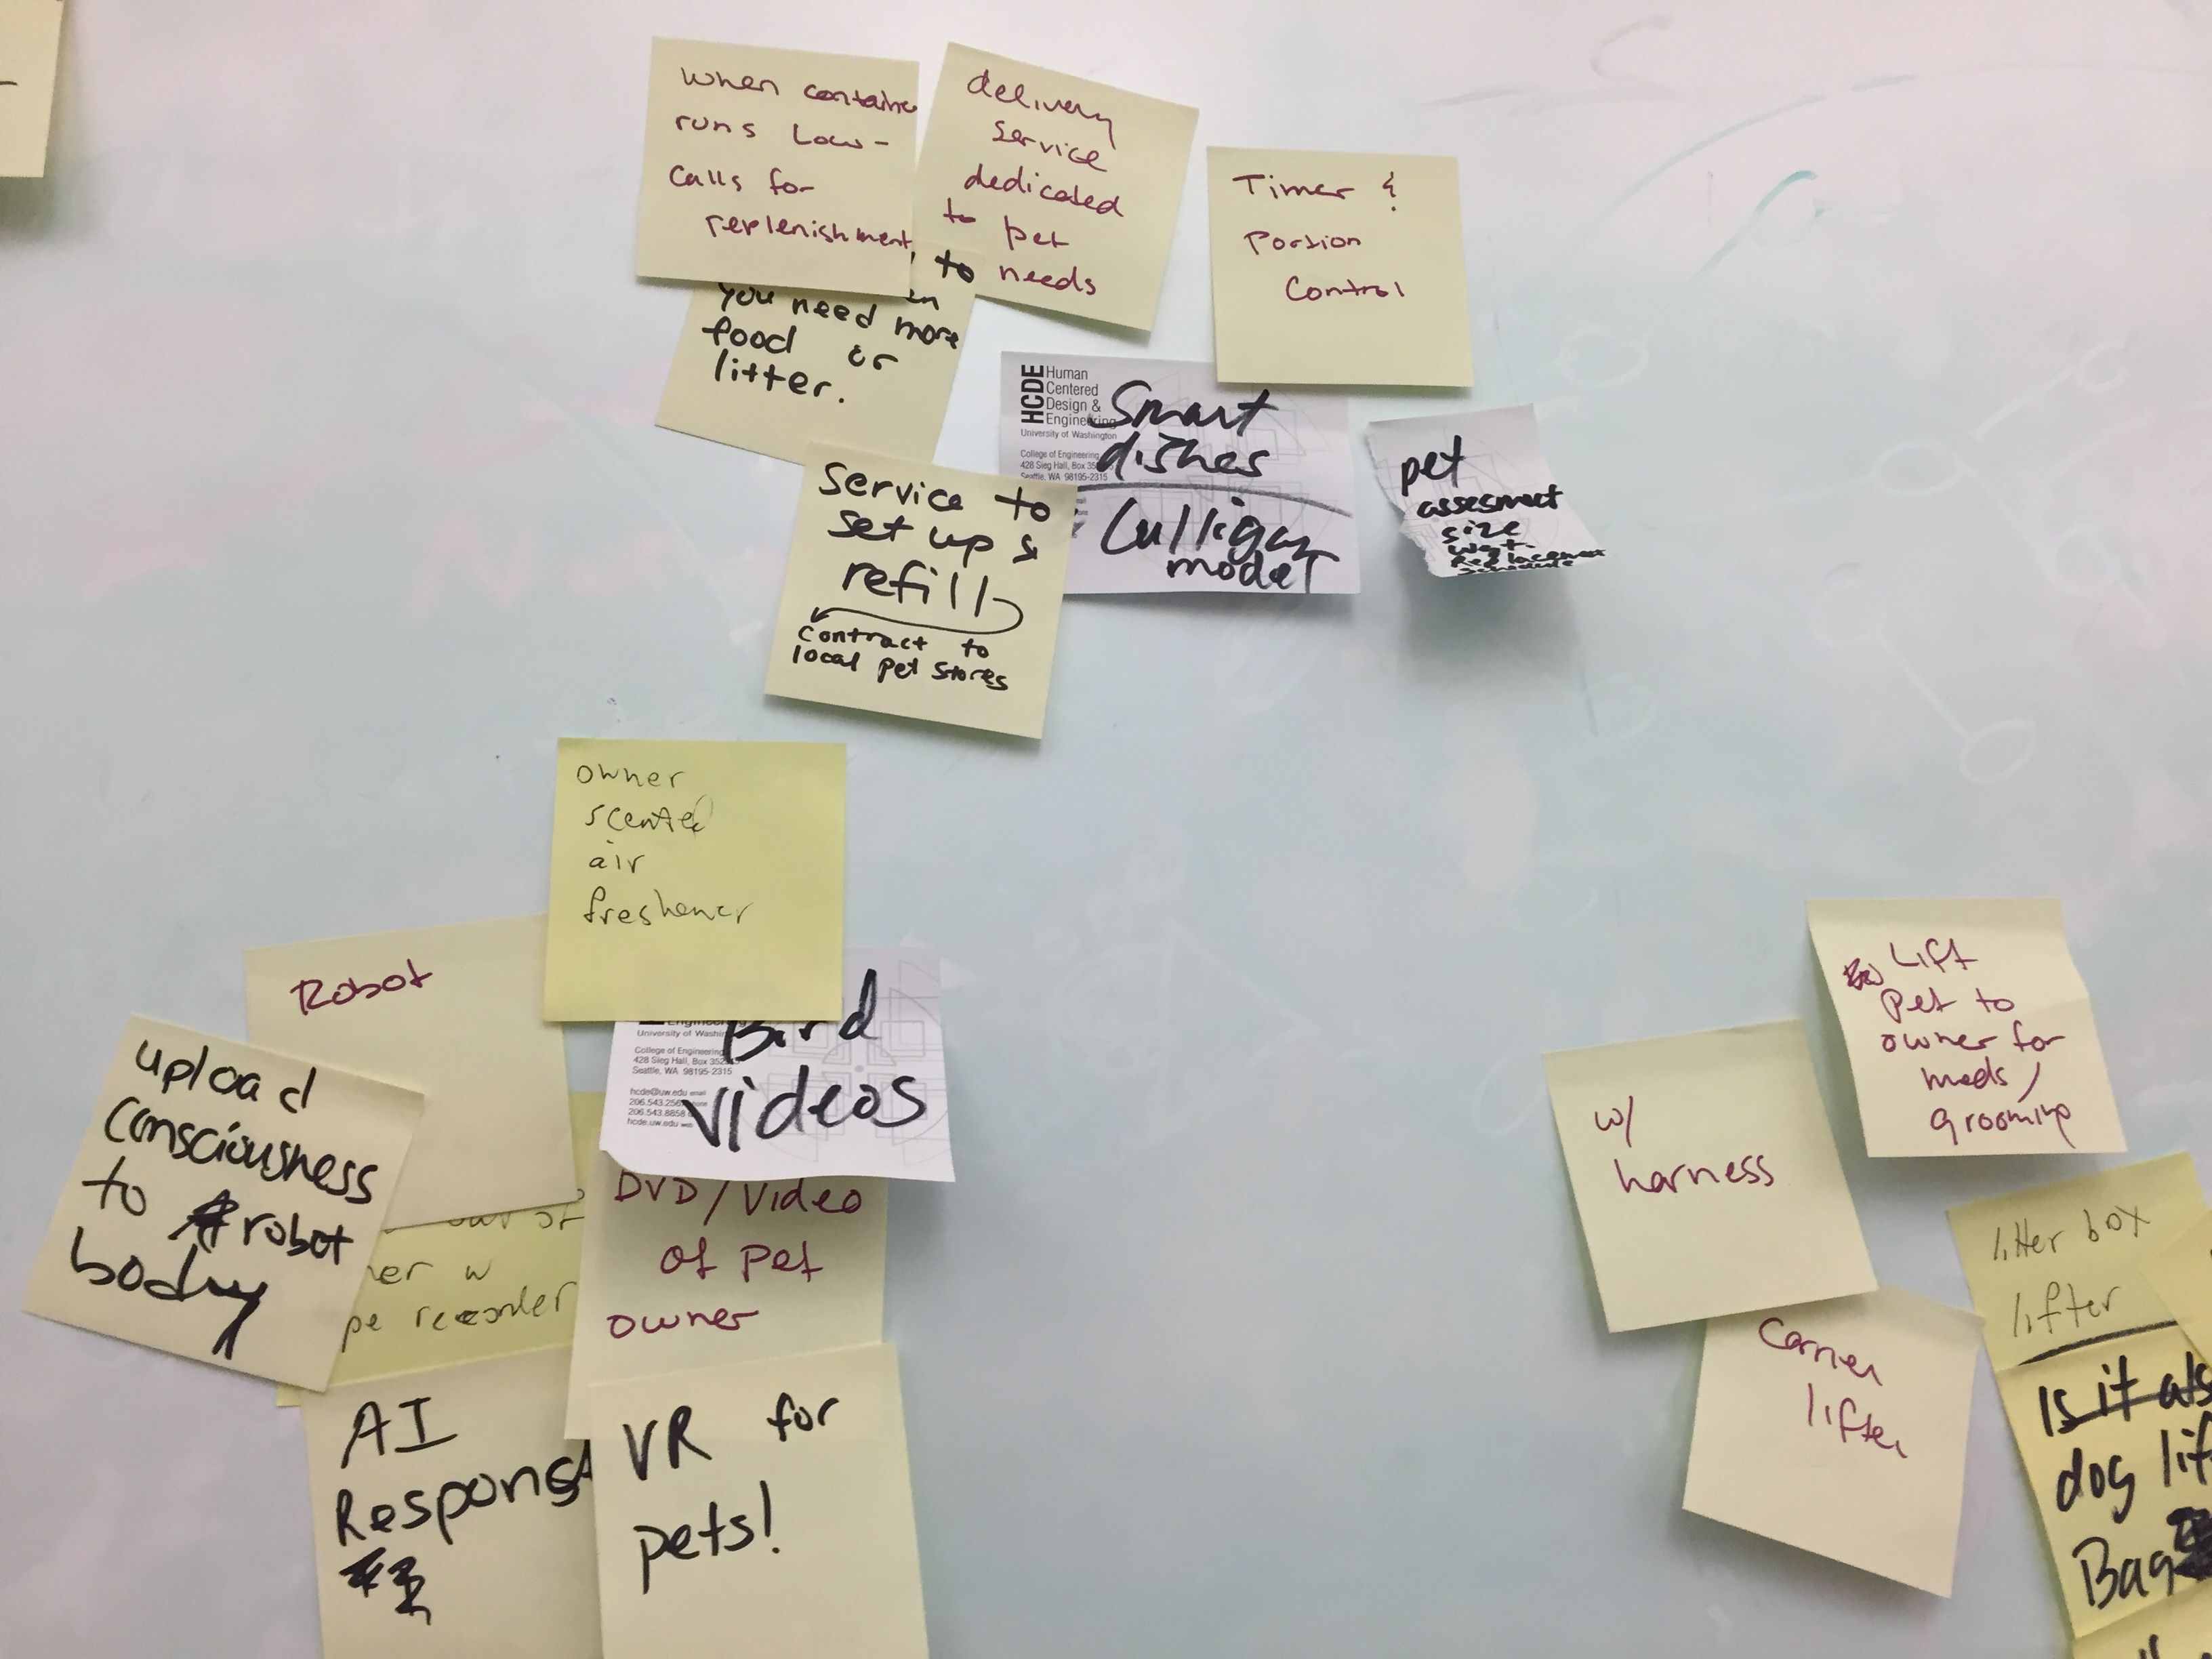 when container
runs Low-
calls for
replenishment
delivery
service
dedicated
to pet
needs
Timer &
Portion
Control
to
you need more
food or
litter.
HCDE
Human
Centered
Design &
Engineering
University of Washington
College of Engineering
428 Sieg Hall, Box 35
Seattle, WA 98195-2315
Smart
dishes
Culligan
model
pet
assesment
size
Replacement
Schedule
Service to
set up &
refill
Contract to
local pet stores
owner
scented
air
freshener
Robot
upload
consciousness
to robot
body
Engineering
University of Washin
College of Engineering
428 Sieg Hall, Box 352
Seattle, WA 98195-2315
hcde@uw.edu email
206.543.256
206.543.8858
hcde.uw.edu web
Bird
videos
out of
ner w
pe recorder
DVD/Video
of pet
owner
AI
Respons
VR for
pets!
Lift
pet to
owner for
meds/
grooming
w/
harness
Carrier
lifter
litter box
lifter
Is it als
dog lif
Bag